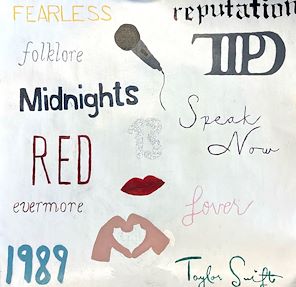 FEARLESS
reputation
folklore
TTPD
Midnights
13
Speak
Now
RED
evermore
Lover
1989
Taylor Swift